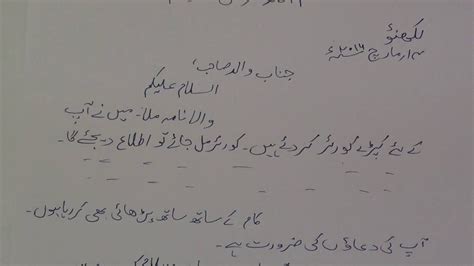 لکھنؤ
۱۴؍مارچ ۲۰۱۶ء
جناب والد صاحب،
السلام علیکم
والا نامہ ملا۔ میں نے آپ
کے لئے کپڑے کورئر کردئے ہیں۔ کورئر مل جائے تو اطلاع دیجئے گا۔
کام کے ساتھ ساتھ پڑھائی بھی کررہا ہوں۔
آپ کی دعاؤں کی ضرورت ہے۔